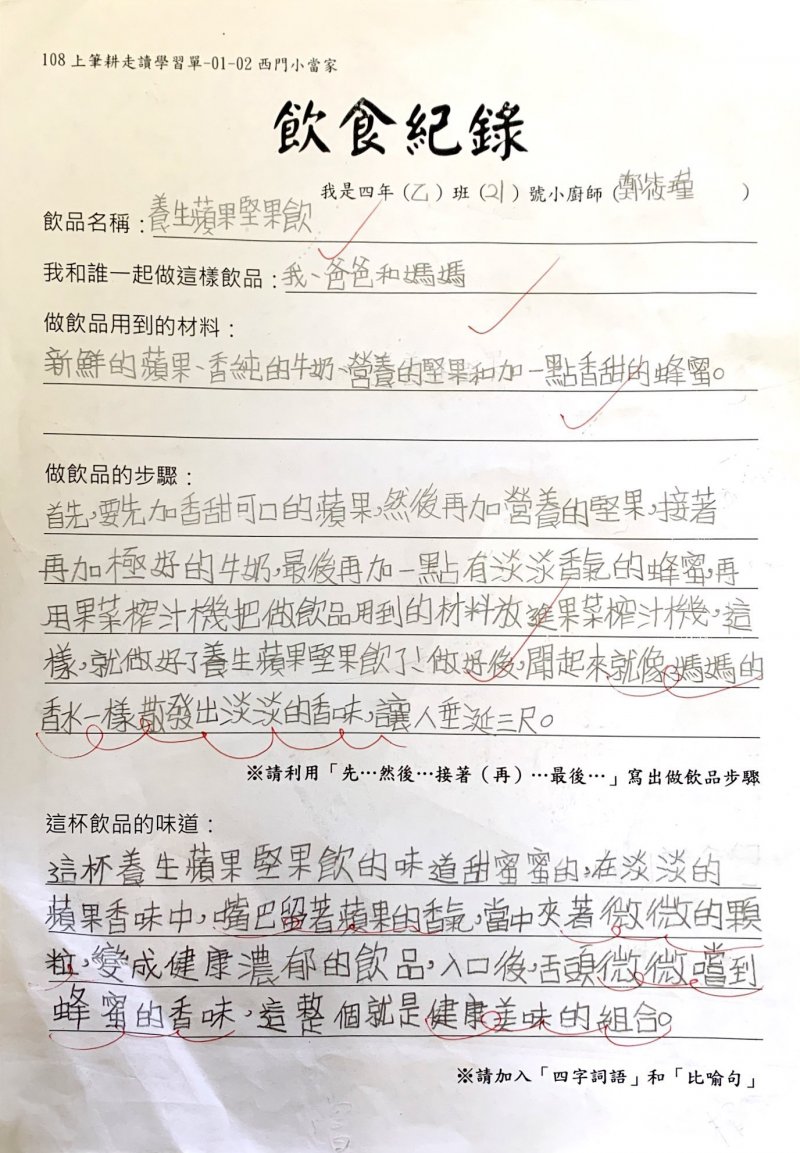 108上筆耕走讀學習單-01-02西門小當家
飲食紀錄
我是四年(乙)班(21)號小廚師(鄭筱瑾)
飲品名稱:養生蘋果堅果飲
我和誰一起做這樣飲品:我、爸爸和媽媽
做飲品用到的材料:
新鮮的蘋果、香純的牛奶、營養的堅果和加一點香甜的蜂蜜。
做飲品的步驟:
首先,要先加香甜可口的蘋果,然後再加營養的堅果,接著
再加極好的牛奶,最後再加一點有淡淡香氣的蜂蜜,再
用果菜榨汁機把做飲品用到的材料放進果菜榨汁機,這
樣,就做好了養生蘋果堅果飲了!做好後,聞起來就像媽媽的
香水一樣散發出淡淡的香味,讓人垂涎三尺。
※請利用「先…然後…接著(再)…最後…」寫出做飲品步驟
這杯飲品的味道:
這杯養生蘋果堅果飲的味道甜蜜蜜的,在淡淡的
蘋果香味中,嘴巴留著蘋果的香氣,當中夾著微微的顆
粒,變成健康濃郁的飲品,入口後,舌頭微微嚐到
蜂蜜的香味,這整個就是健康美味的組合。
※請加入「四字詞語」和「比喻句」